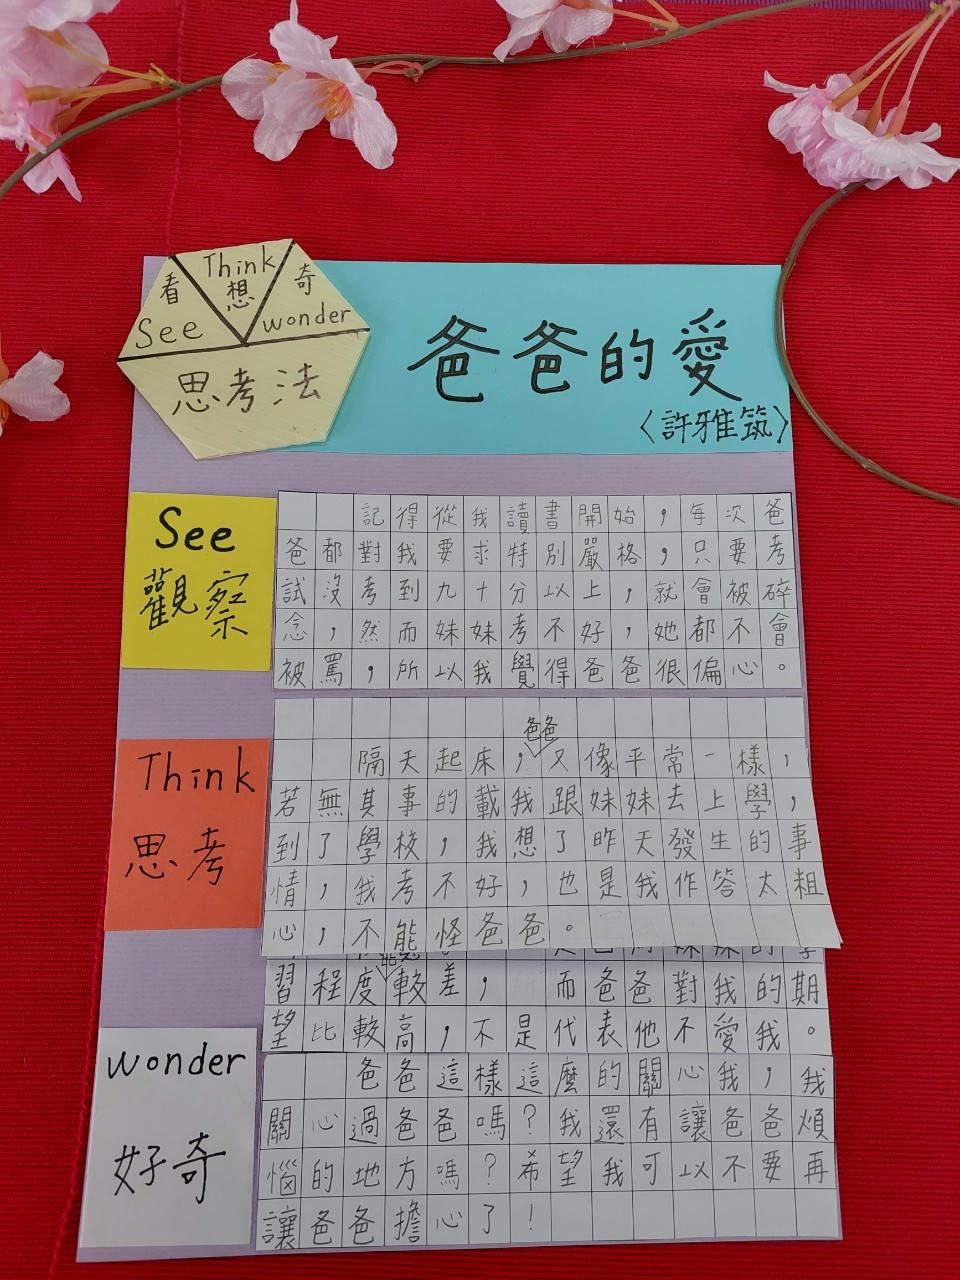 看 Think 想 奇
See wonder
思考法
爸爸的愛
〈許雅筑〉
See
觀察
記得從我讀書開始，每次爸
爸都對我要求特別嚴格，只要考
試沒考到九十分以上，就會被碎
念，然而妹妹考不好，她都不會
被罵，所以我覺得爸爸很偏心。
Think
思考
爸爸
隔天起床，又像平常一樣，
若無其事的載我跟妹妹去上學，
到了學校，我想了昨天發生的事
情，我考不好，也是我作答太粗
心，不能怪爸爸。
習程度較差，而爸爸對我的期
望比較高，不是代表他不愛我。
wonder
好奇
爸爸這樣這麼的關心我，我
關心過爸爸嗎？我還有讓爸爸煩
惱的地方嗎？希望我可以不要再
讓爸爸擔心了！